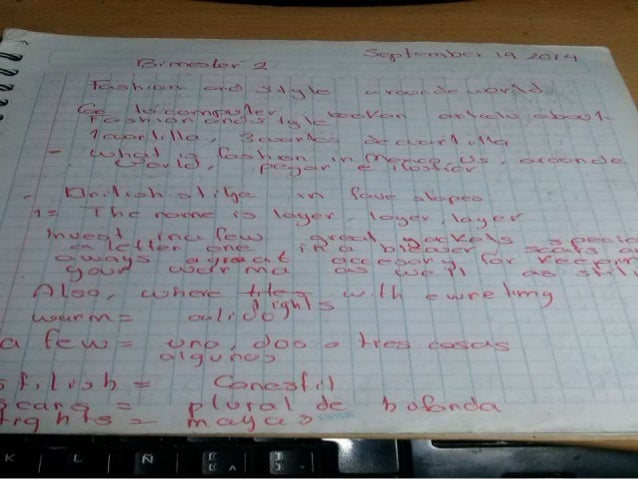 September 19 2014
Bimester 2
Fashion and style arounde world
Go to computer, article about
Fashion and style
1 cuartilla, 3 cuartos de cuartilla
- What is fashion in Mexico, US, arounde
world, pegar e ilustrar
- British stilye in five steps
1= The name is layer, layer, layer
Invest in a few great jackets
a letter one in a blazer scarfs a
always a great accesory for keepin
your warm as well as
Also, where tites with everething
lights
warm = calido
a few = uno, dos o tres cosas
algunos
= Con estil
= plural de bofanda
= mayas
K L Ñ